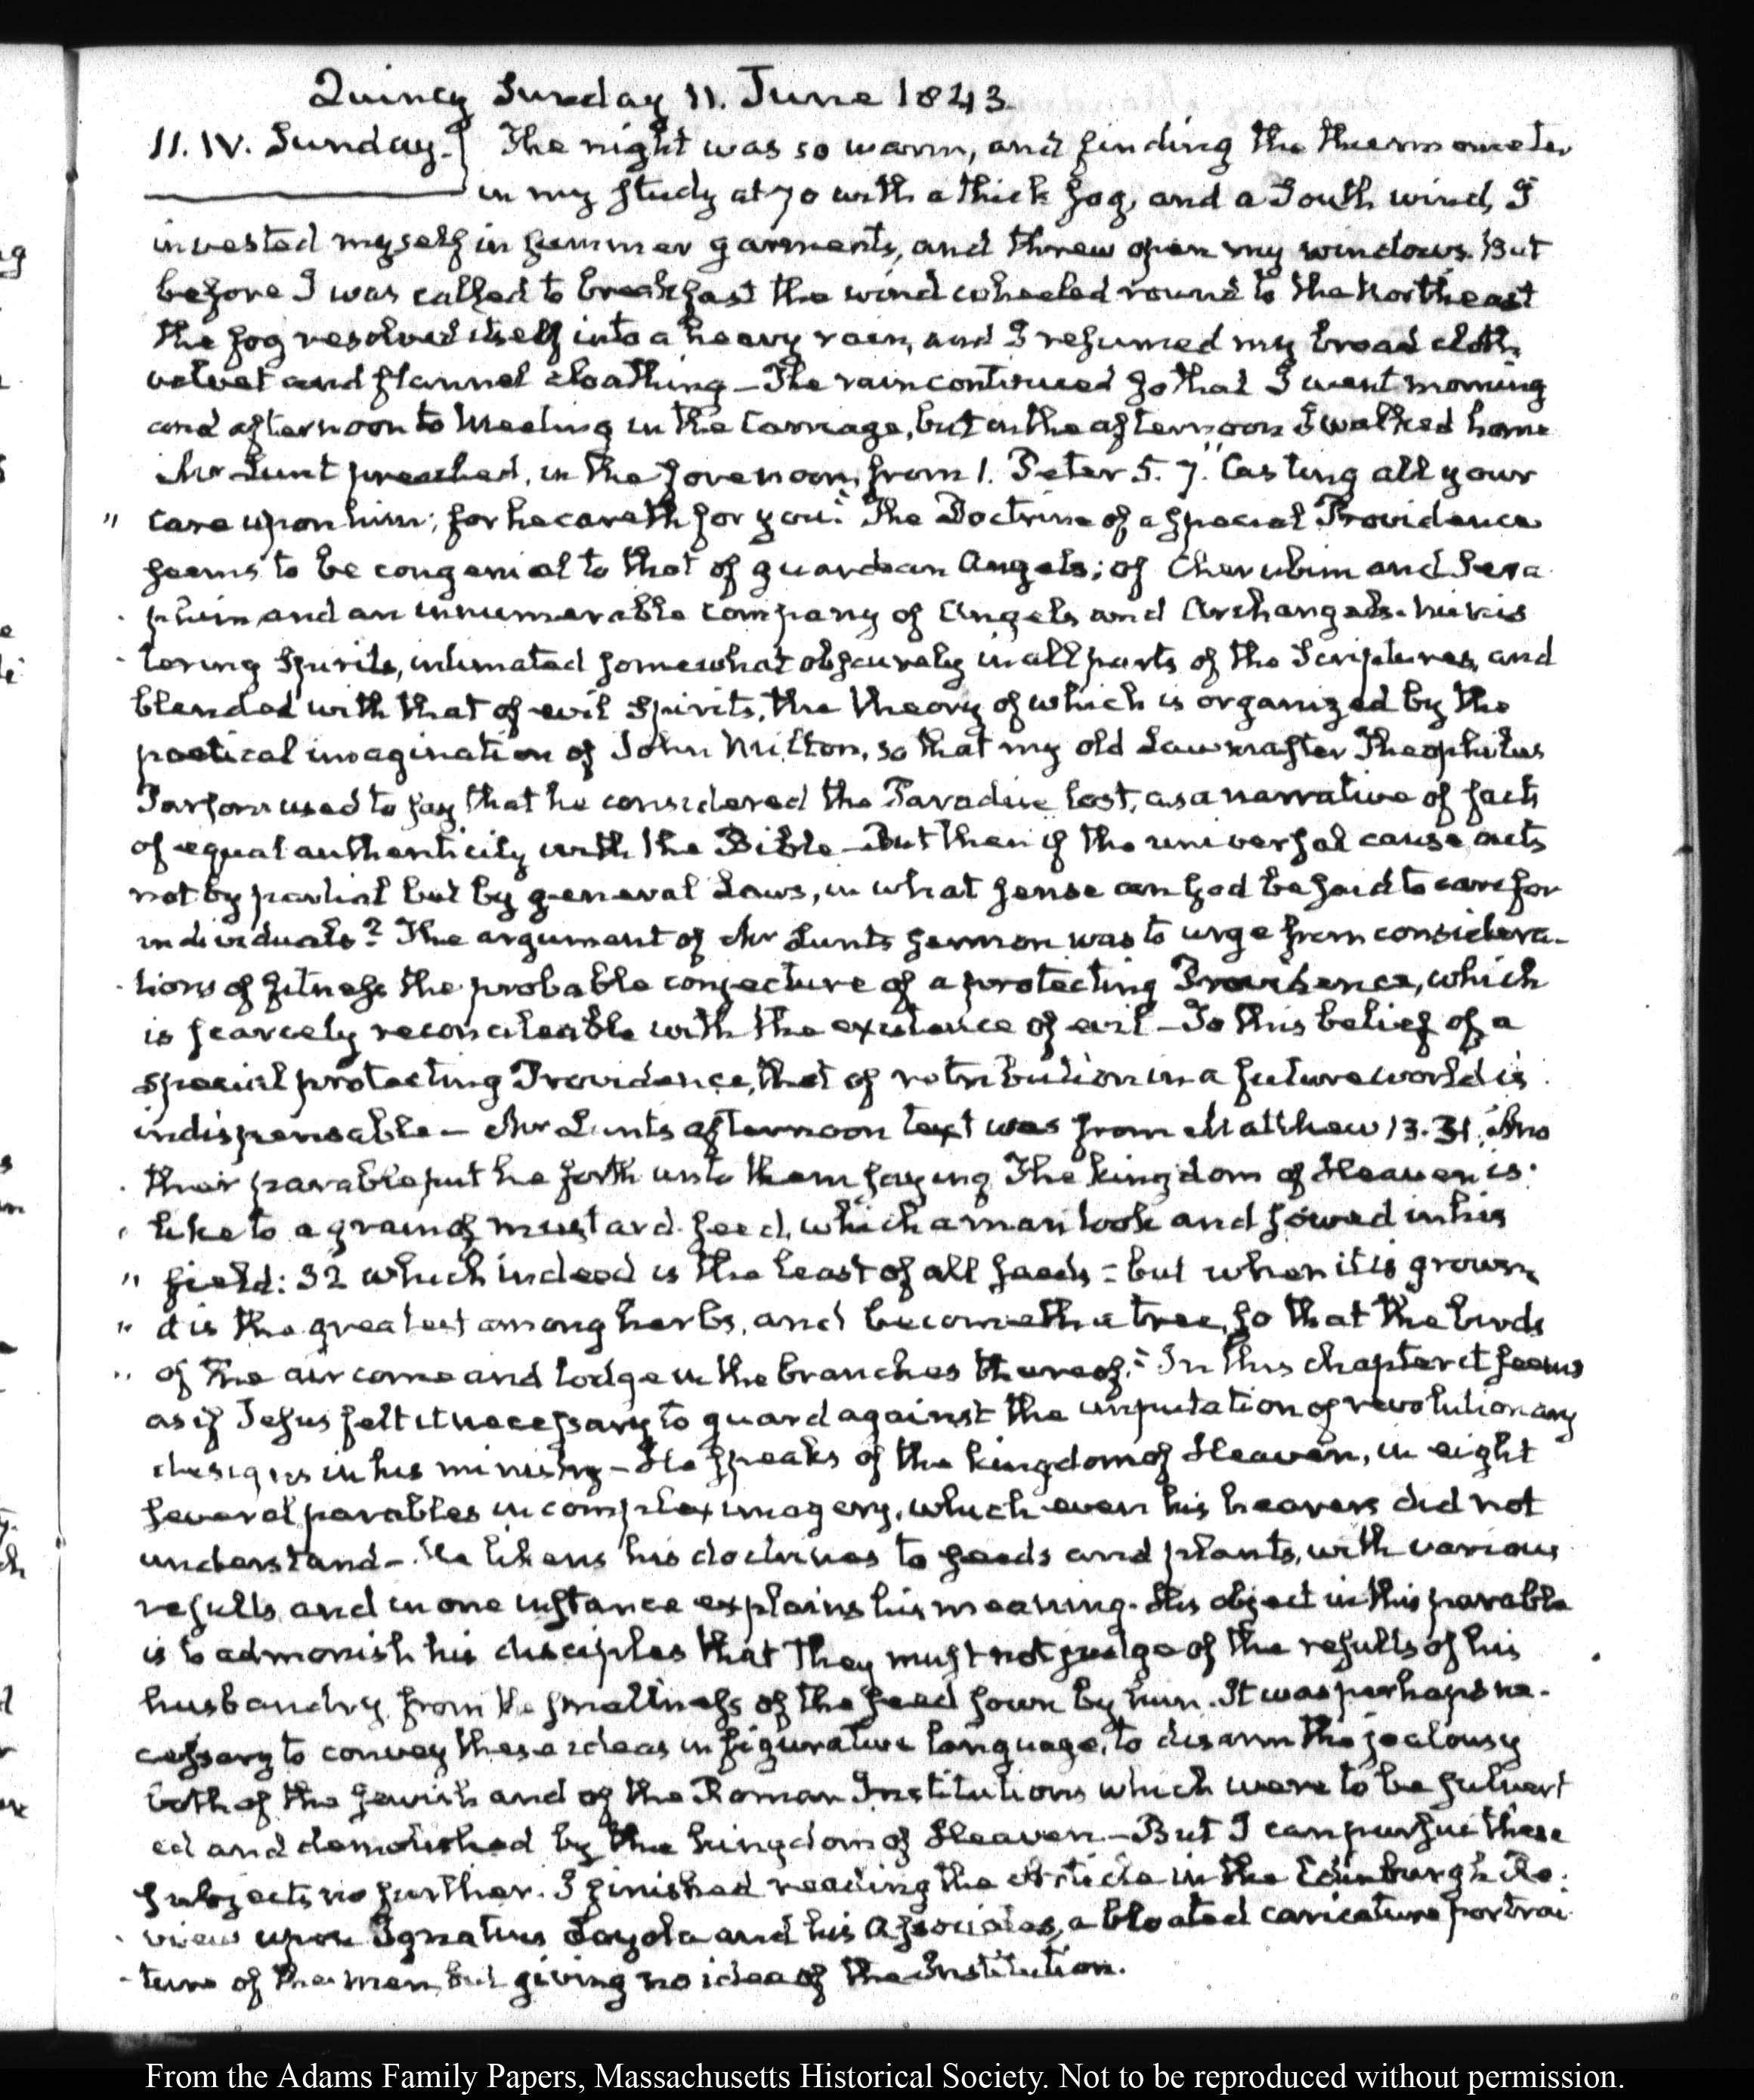 Quincy Sunday 11. June 1843
11. IV. Sunday. } The night was so warm, and finding the thermometer
in my study at 70 with a thick fog, and a South wind, I
invested myself in summer garments, and threw open my windows. But
before I was called to breakfast the wind wheeled round to the Northeast
the fog resolved itself into a heavy rain, and I resumed my broad cloth,
velvet and flannel cloathing — The rain continued so that I went morning
and afternoon to Meeting in the Carriage, but in the afternoon I walked home
Mr Lunt preached, in the forenoon, from 1. Peter 5. 7. "Casting all your
" care upon him; for he careth for you." The Doctrine of a special Providence
seems to be congenial to that of guardian Angels; of Cherubim and Sera
phim and an innumerable company of Angels and Archangels. Minis
tering Spirits, intimated somewhat obscurely in all parts of the Scriptures, and
blended with that of evil Spirits, the theory of which is organized by the
poetical imagination of John Milton, so that my old Law master Theophilus
Parsons used to say that he considered the Paradise lost, as a narrative of facts
of equal authenticity with the Bible — But then if the universal cause acts
not by partial but by general Laws, in what sense can God be said to care for
individuals? The argument of Mr Lunts sermon was to urge from considera-
tions of fitness the probable conjecture of a protecting Providence, which
is scarcely reconcileable with the existence of evil — To this belief of a
special protecting Providence, that of retribution in a future world is
indispensable — Mr Lunts afternoon text was from Matthew 13. 31. "Ano
ther parable put he forth unto them saying The kingdom of Heaven is
" like to a grain of mustard seed, which a man took and sowed in his
" field: 32 which indeed is the least of all seeds: but when it is grown
" it is the greatest among herbs, and becometh a tree, so that the birds
" of the air come and lodge in the branches thereof." In this chapter it seems
as if Jesus felt it necessary to guard against the imputation of revolutionary
designs in his ministry — He speaks of the kingdom of Heaven, in eight
several parables in complex imagery, which even his hearers did not
understand — He likens his doctrines to seeds and plants, with various
results, and in one instance explains his meaning. His object in this parable
is to admonish his disciples that they must not judge of the results of his
husbandry from the smallness of the seed sown by him. It was perhaps ne-
cessary to convey these ideas in figurative language, to disarm the jealousy
both of the Jewish and of the Roman Institutions which were to be subvert
ed and demolished by the kingdom of Heaven — But I can pursue these
subjects no further. I finished reading the Article in the Edinburgh Re-
view upon Ignatius Loyola and his Associates, a bloated caricature portrai
ture of the men, but giving no idea of the Institution.
From the Adams Family Papers, Massachusetts Historical Society. Not to be reproduced without permission.